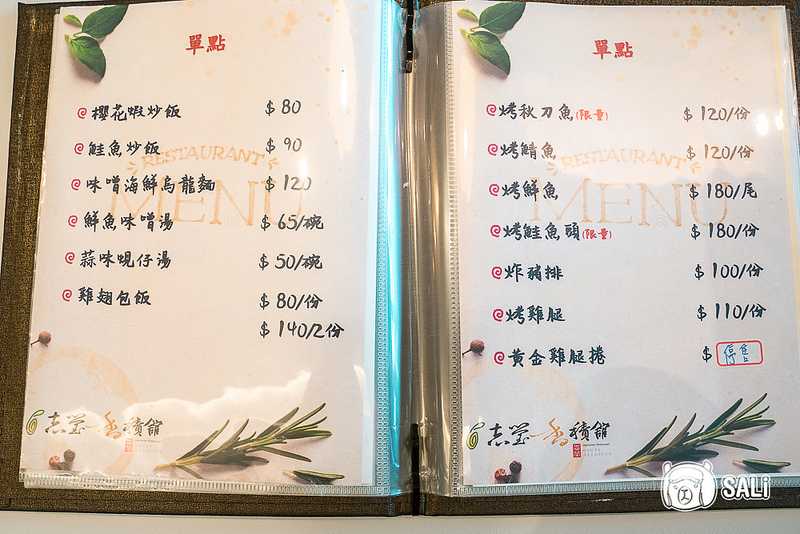 單點
櫻花蝦炒飯 $ 80
鮭魚炒飯 $ 90
味噌海鮮烏龍麵 $ 120
鮮魚味噌湯 $ 65/碗
蒜味蜆仔湯 $ 50/碗
雞翅包飯 $ 80/份
$ 140/2份
RESTAURANT
MENU
單點
烤秋刀魚(限量) $ 120/份
烤鯖魚 $ 120/份
烤鮮魚 $ 180/尾
烤鮭魚頭(限量) $ 180/份
炸豬排 $ 100/份
烤雞腿 $ 110/份
黃金雞腿捲 $ 停售
RESTAURANT
MENU
SALi